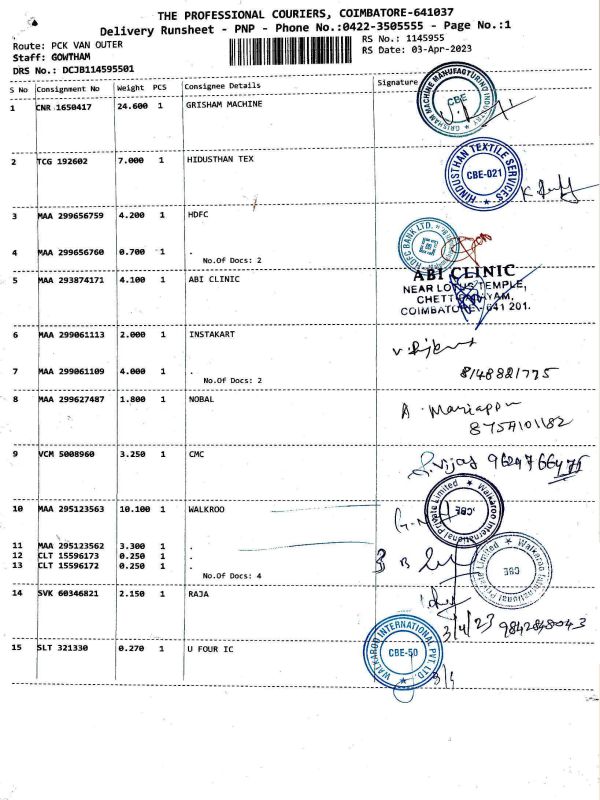 THE PROFESSIONAL COURIERS, COIMBATORE-641037
Delivery Runsheet - PNP - Phone No.:0422-3505555 - Page No.:1
Route: PCK VAN OUTER
RS No.: 1145955
Staff: GOWTHAM
RS Date: 03-Apr-2023
DRS No.: DCJB114595501
S No Consignment No Weight PCS Consignee Details Signature
1 CNR 1650417 24.600 1 GRISHAM MACHINE
GRISHAM MACHINE MANUFACTURING INDUSTRY CBE
2 TCG 192602 7.000 1 HIDUSTHAN TEX
HINDUSTHAN TEXTILE SERVICES CBE-021
3 MAA 299656759 4.200 1 HDFC
HDFC BANK LTD.
4 MAA 299656760 0.700 1 .
No.Of Docs: 2
5 MAA 293874171 4.100 1 ABI CLINIC
ABI CLINIC
NEAR LOTUS TEMPLE,
COIMBATORE - 641 201.
6 MAA 299061113 2.000 1 INSTAKART
7 MAA 299061109 4.000 1 .
8148821775
No.Of Docs: 2
8 MAA 299627487 1.800 1 NOBAL
A. Mariappn
8754101182
9 VCM 5008960 3.250 1 CMC
Vijay
10 MAA 295123563 10.100 1 WALKROO
Walkaroo International Private Limited CBE
11 MAA 295123562 3.300 1 .
12 CLT 15596173 0.250 1 .
13 CLT 15596172 0.250 1 .
No.Of Docs: 4
Walkaroo International Private Limited CBE
14 SVK 60346821 2.150 1 RAJA
3/4/23 9842848043
15 SLT 321330 0.270 1 U FOUR IC
WALKAROO INTERNATIONAL PVT. LTD. CBE-50